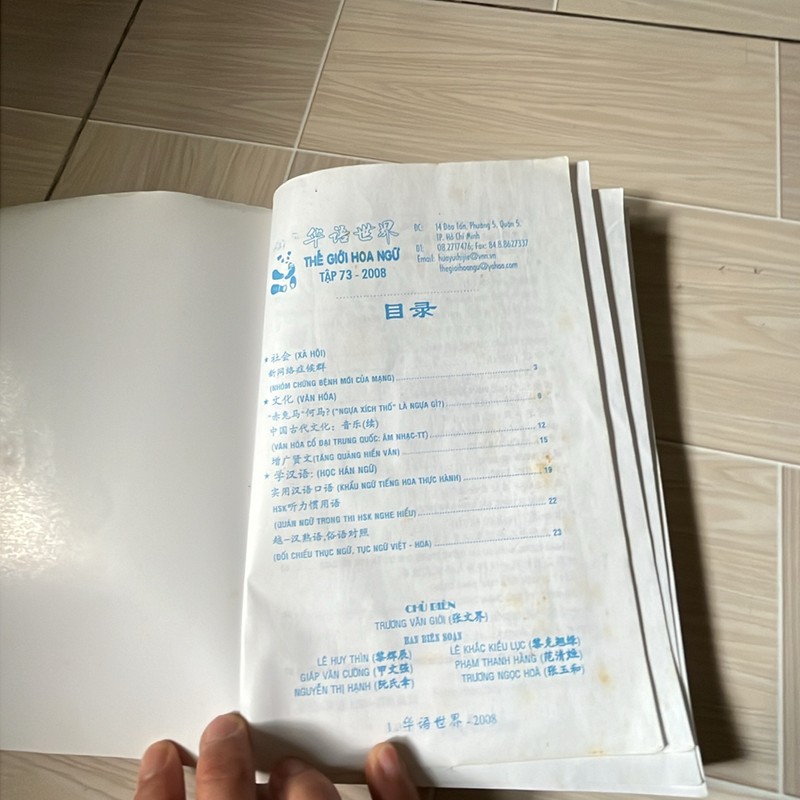 华语世界
THẾ GIỚI HOA NGỮ
TẬP 73 - 2008
ĐC: 14 Đào Tấn, Phường 5, Quận 5,
TP. Hồ Chí Minh
ĐT: 08.2717476; Fax: 84.8.8627337
Email: huayushijie@vnn.vn
thegioihoangu@yahoo.com
目录
* 社会 (XÃ HỘI)
新网络症候群
(NHÓM CHỨNG BỆNH MỚI CỦA MẠNG) 3
* 文化 (VĂN HÓA)
"赤兔马"何马? ("NGỰA XÍCH THỐ" LÀ NGỰA GÌ?) 9
中国古代文化: 音乐(续)
(VĂN HÓA CỔ ĐẠI TRUNG QUỐC: ÂM NHẠC-TT) 12
增广贤文(TĂNG QUẢNG HIỀN VĂN) 15
* 学汉语: (HỌC HÁN NGỮ)
实用汉语口语 (KHẨU NGỮ TIẾNG HOA THỰC HÀNH) 19
HSK听力惯用语
(QUÁN NGỮ TRONG THI HSK NGHE HIỂU) 22
越-汉熟语,俗语对照
(ĐỐI CHIẾU THỤC NGỮ, TỤC NGỮ VIỆT - HOA) 23
CHỦ BIÊN
TRƯƠNG VĂN GIỚI (张文界)
BAN BIÊN SOẠN
LÊ HUY THÌN (黎辉辰)
LÊ KHẮC KIỀU LỤC (黎克翘绿)
GIÁP VĂN CƯỜNG (甲文强)
PHẠM THANH HẰNG (范清姮)
NGUYỄN THỊ HẠNH (阮氏幸)
TRƯƠNG NGỌC HOÀ (张玉和)
1. 华语世界 - 2008